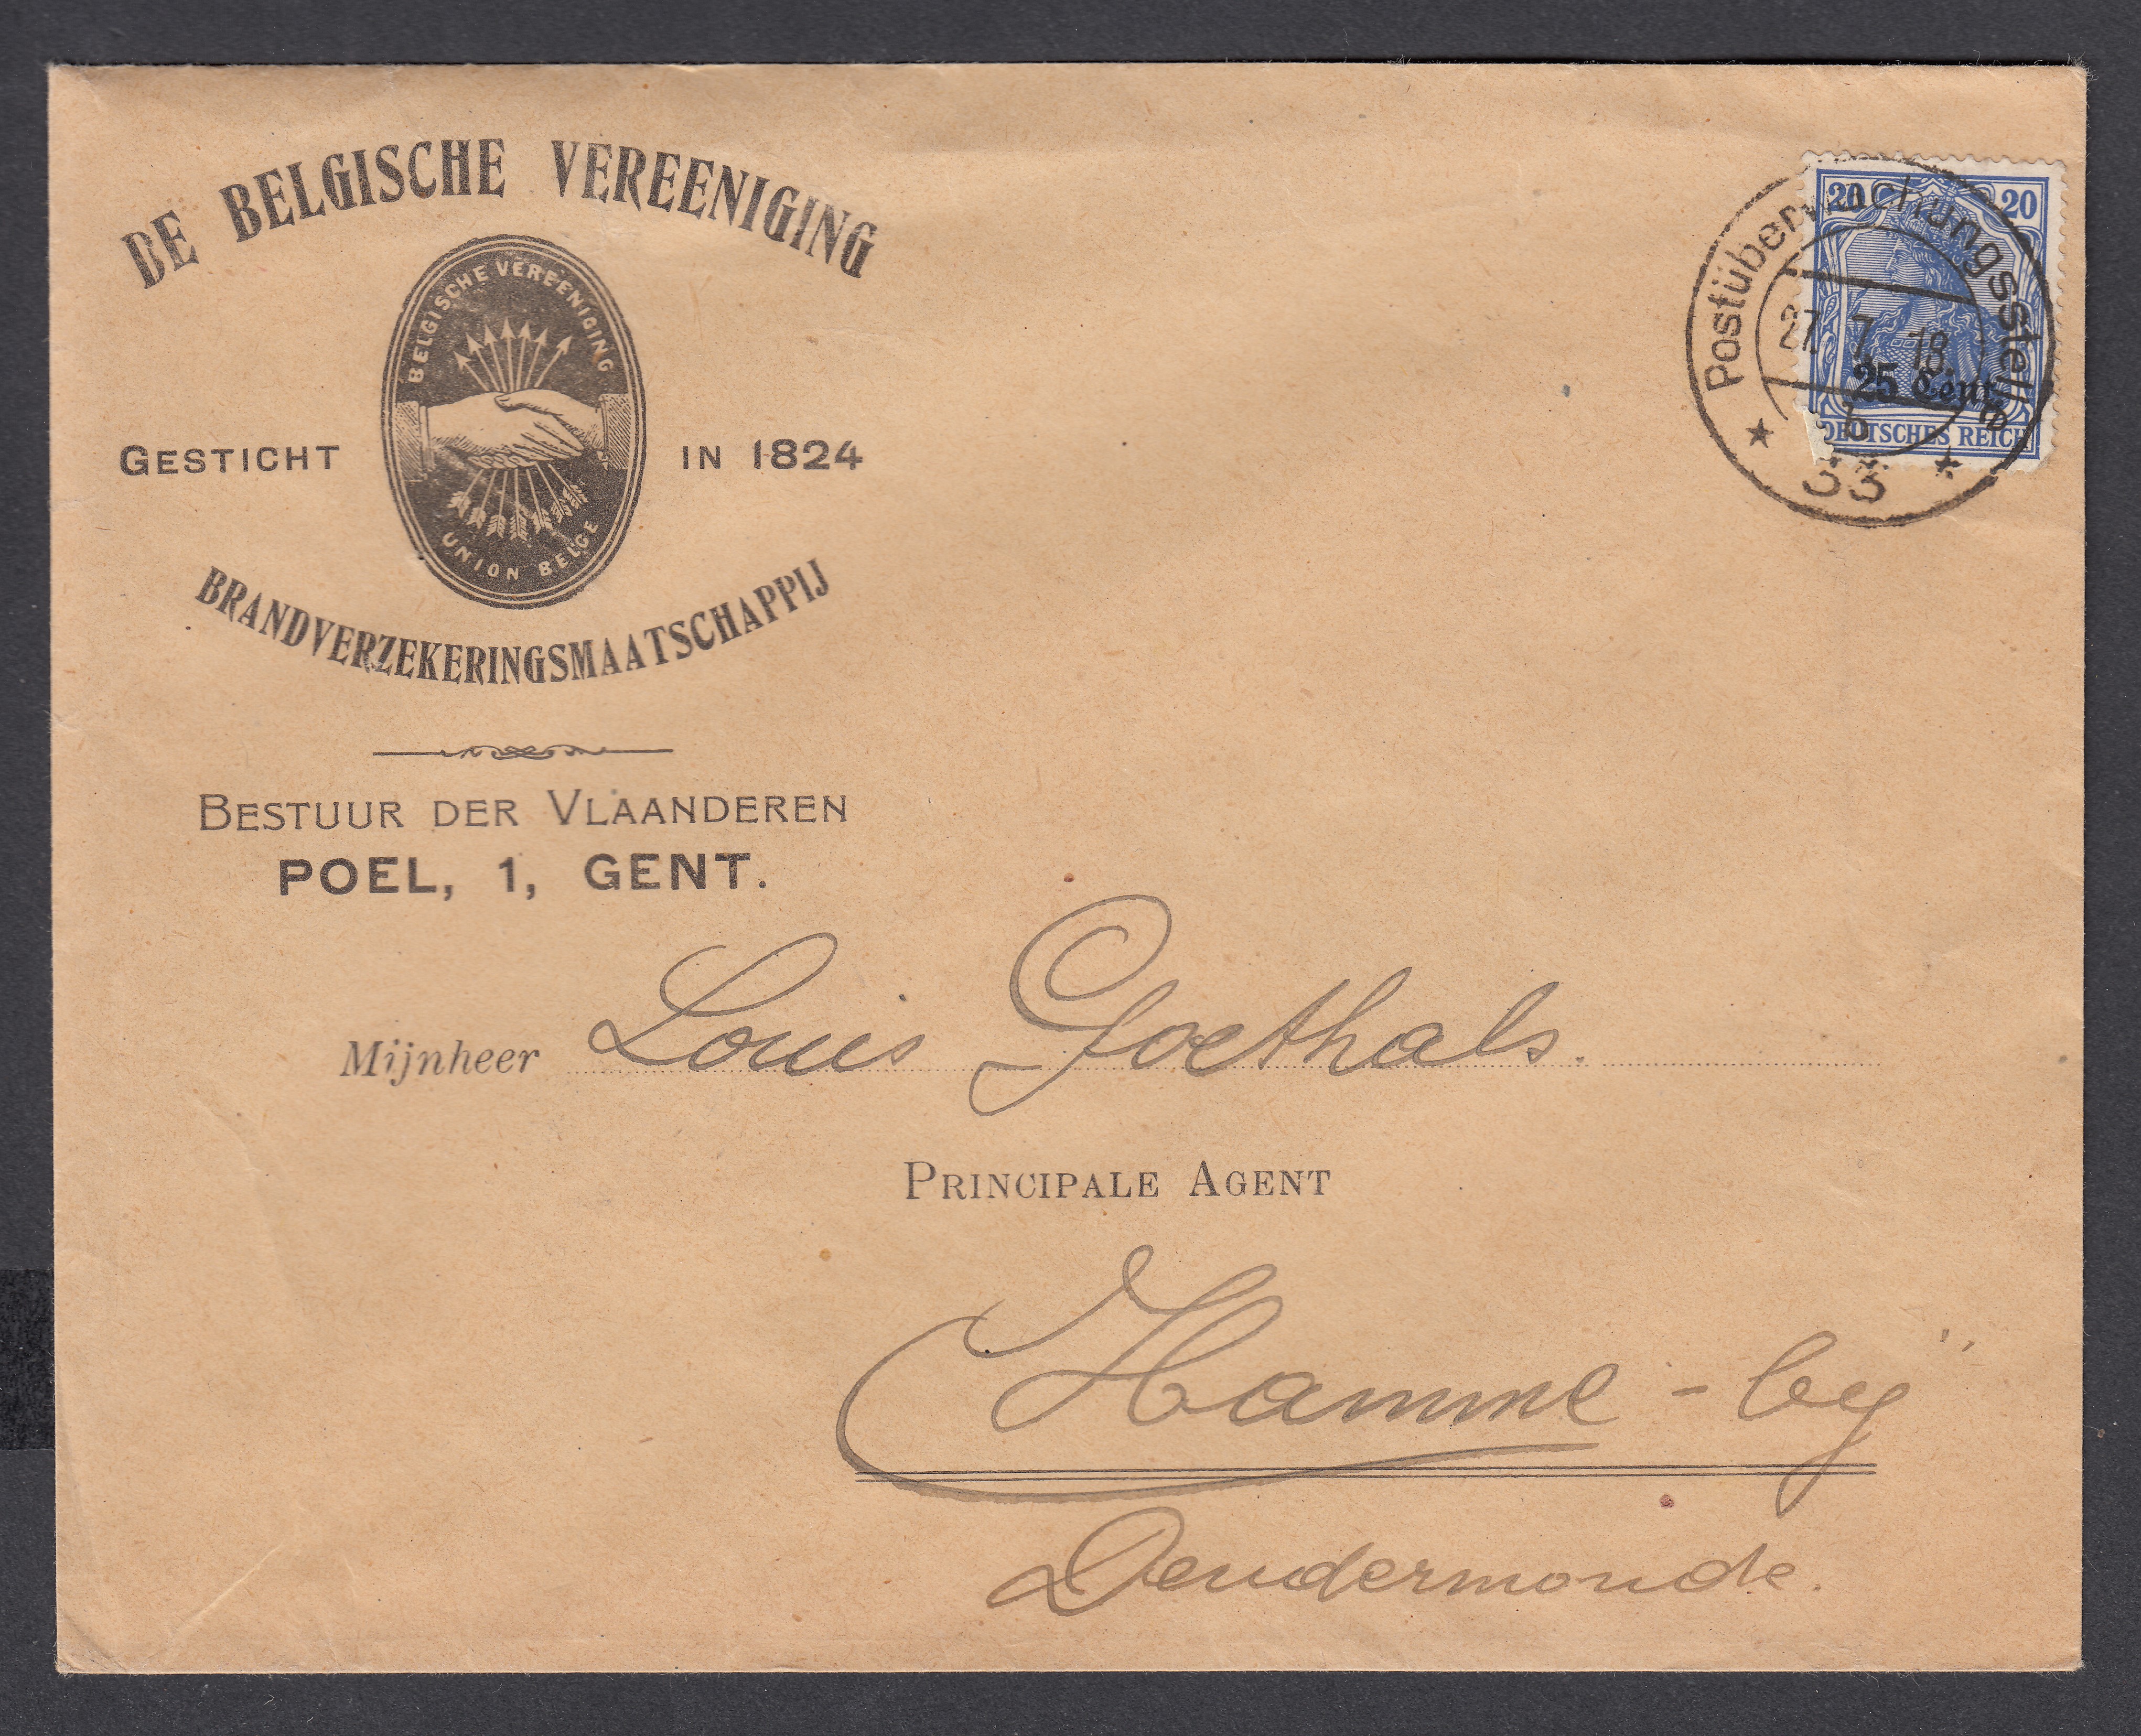 DE BELGISCHE VEREENIGING
BELGISCHE VEREENIGING
GESTICHT IN 1824
UNION BELGE
BRANDVERZEKERINGSMAATSCHAPPIJ
BESTUUR DER VLAANDEREN
POEL, 1, GENT.
20 20
25 Cent.
DEUTSCHES REICH
Postüberwachungsstelle
27. 7. 18.
b
* 33 *
Mijnheer Louis Goethals.
PRINCIPALE AGENT
Hamme - bÿ
Dendermonde.